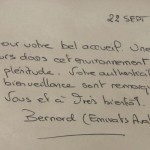 22 SEPT
our votre bel accueil. Une
urs dans cet environnement
plénitude. Votre authenticit
bienveillance sont remarq
Vous et à Très bientôt.
Bernard (Emirats Ara